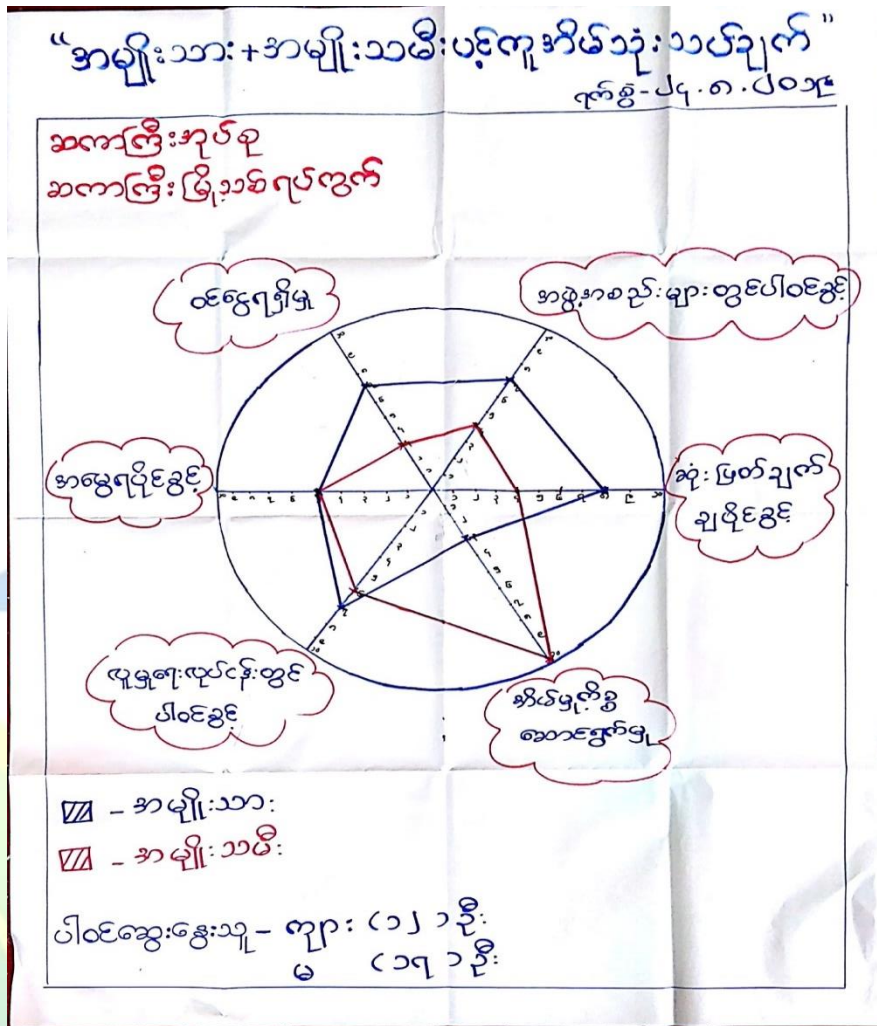 "အမျိုးသား+အမျိုးသမီးပင့်ကူအိမ်သုံးသပ်ချက်"
ရက်စွဲ-၂၄.၈.၂၀၁၉
ဆကာကြီးအုပ်စု
ဆကာကြီးမြို့သစ်ရပ်ကွက်
ဝင်ငွေရရှိမှု
အဖွဲ့အစည်းများတွင်ပါဝင်ခွင့်
အမွေရပိုင်ခွင့်
ဆုံးဖြတ်ချက်
ချပိုင်ခွင့်
လူမှုရေးလုပ်ငန်းတွင်
ပါဝင်ခွင့်
အိမ်မှုကိစ္စ
ဆောင်ရွက်မှု
- အမျိုးသား
- အမျိုးသမီး
ပါဝင်ဆွေးနွေးသူ - ကျား (၁၂) ဦး
မ (၁၇) ဦး